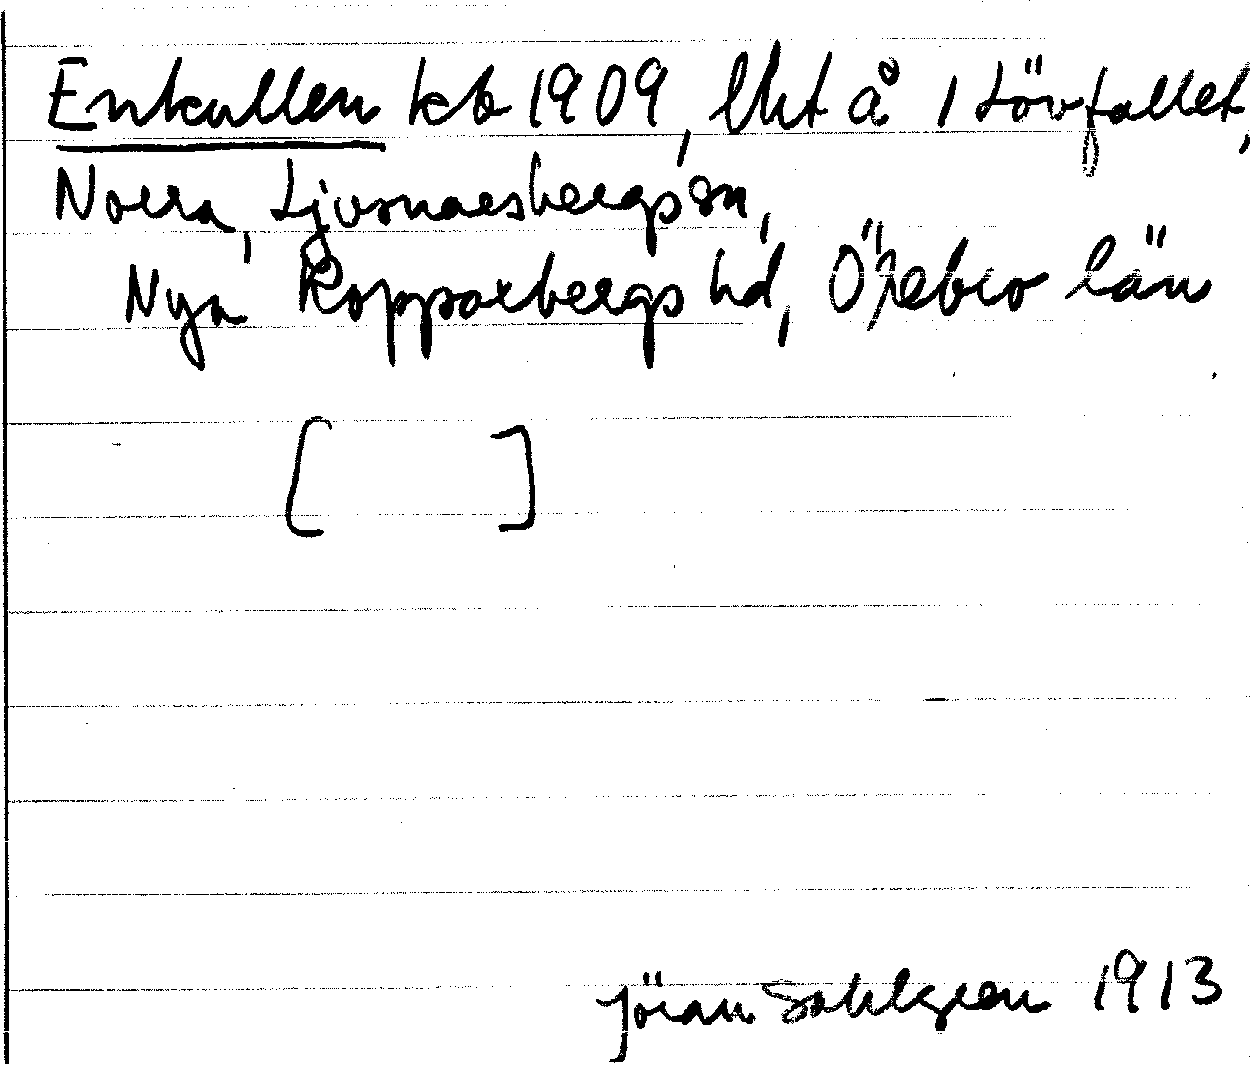 Enkullen kb 1909, lht å 1 Lövfallet,
Norra, Ljusnarsbergs sn,
Nya Kopparbergs hd, Örebro län
[ ]
Jöran Sahlgren 1913